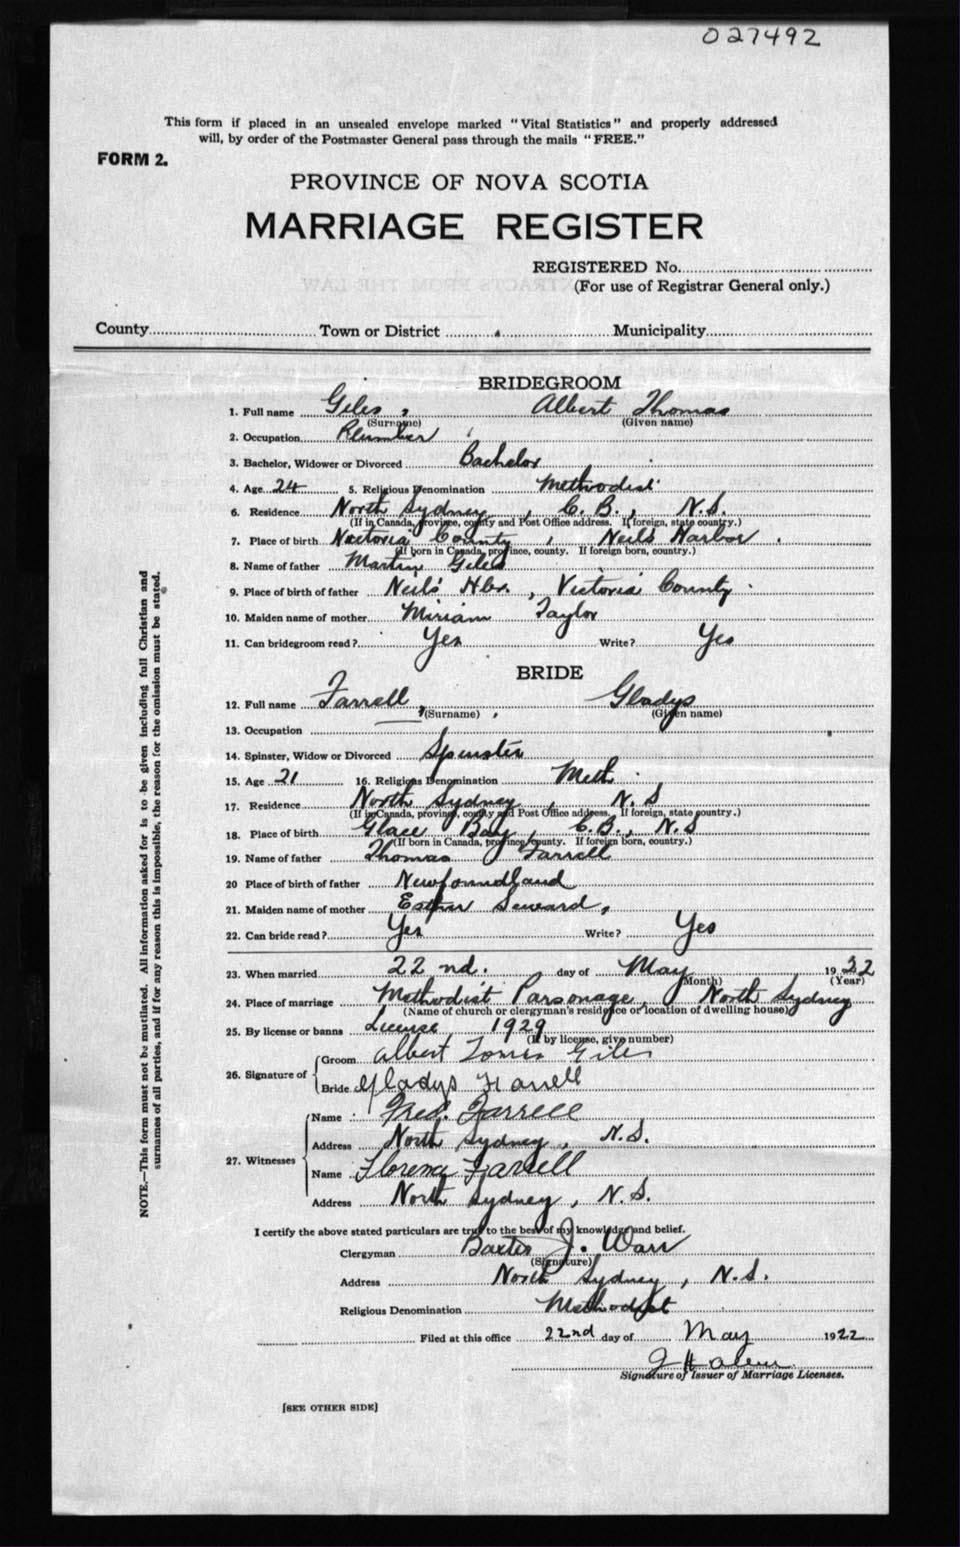 027492
This form if placed in an unsealed envelope marked "Vital Statistics" and properly addressed
will, by order of the Postmaster General pass through the mails "FREE."
FORM 2.
PROVINCE OF NOVA SCOTIA
MARRIAGE REGISTER
REGISTERED No.
(For use of Registrar General only.)
County Town or District Municipality
BRIDEGROOM
1. Full name Giles, Albert Thomas
(Surname) (Given name)
2. Occupation Plumber
3. Bachelor, Widower or Divorced Bachelor
4. Age 24 5. Religious Denomination Methodist
6. Residence North Sydney, C.B., N.S.
(If in Canada, province, county and Post Office address. If foreign, state country.)
7. Place of birth Victoria County, Neils Harbor.
(If born in Canada, province, county. If foreign born, country.)
8. Name of father Martin Giles
9. Place of birth of father Neils' Hbr., Victoria County
10. Maiden name of mother Miriam Taylor
11. Can bridegroom read? Yes Write? Yes
BRIDE
12. Full name Farrell, Gladys
(Surname) (Given name)
13. Occupation
14. Spinster, Widow or Divorced Spinster
15. Age 21 16. Religious Denomination Meth.
17. Residence North Sydney, N.S
(If in Canada, province, county and Post Office address. If foreign, state country.)
18. Place of birth Glace Bay, C.B., N.S
(If born in Canada, province, county. If foreign born, country.)
19. Name of father Thomas Farrell
20 Place of birth of father Newfoundland
21. Maiden name of mother Esther Seward,
22. Can bride read? Yes Write? Yes
23. When married 22nd. day of May 1922
(Month) (Year)
24. Place of marriage Methodist Parsonage, North Sydney
(Name of church or clergyman's residence or location of dwelling house)
25. By license or banns License, 1929
(If by license, give number)
26. Signature of
Groom Albert Giles
Bride Gladys Farrell
27. Witnesses
Name Fred. Farrell
Address North Sydney, N.S.
Name Florence Farrell
Address North Sydney, N.S.
I certify the above stated particulars are true to the best of my knowledge and belief.
Clergyman Baxter J. Warr
(Signature)
Address North Sydney, N.S.
Religious Denomination Methodist
Filed at this office 22nd day of May 1922
Signature of Issuer of Marriage Licenses.
[SEE OTHER SIDE]
NOTE.—This form must not be mutilated. All information asked for is to be given including full Christian and
surnames of all parties, and if for any reason this is impossible, the reason for the omission must be stated.